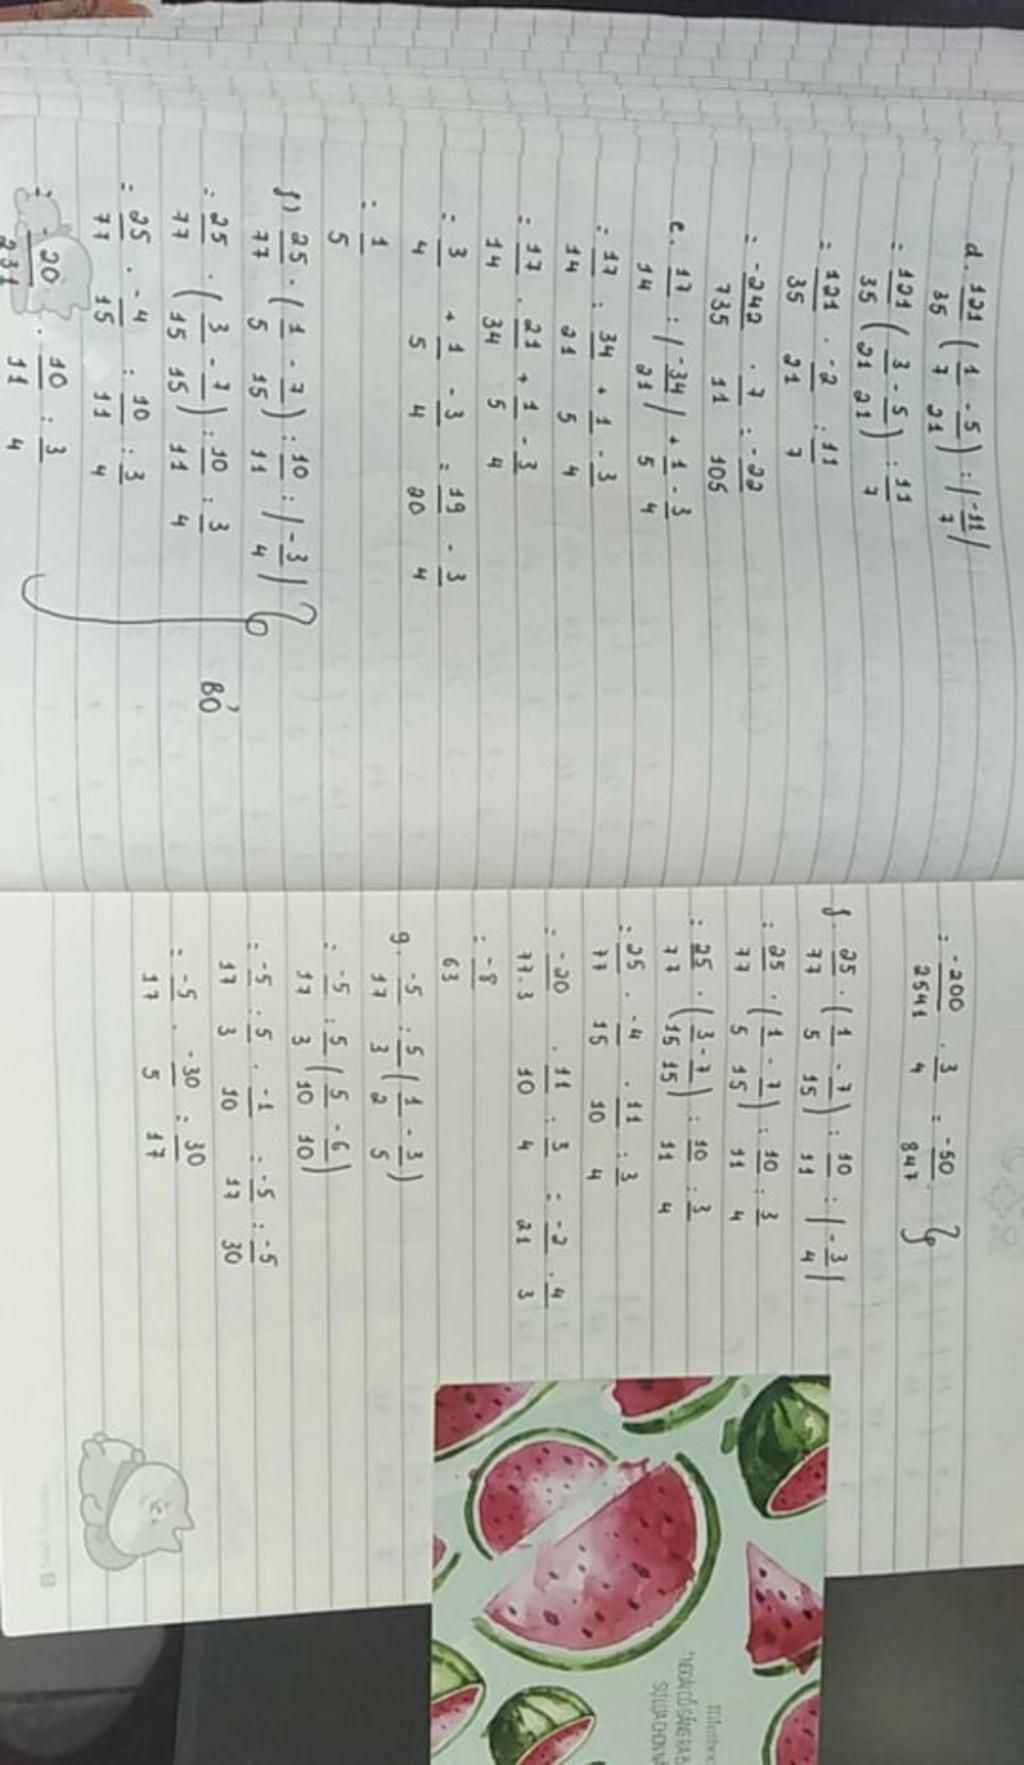 d. 121/35 (1/7 - 5/21) : |-11/7|
= 121/35 (3/21 - 5/21) : 11/7
= 121/35 . -2/21 : 11/7
= -242/735 . 7/11 = -22/105
e. 17/14 : |-34/21| + 1/5 - 3/4
= 17/14 : 34/21 + 1/5 - 3/4
= 17/14 . 21/34 + 1/5 - 3/4
= 3/4 + 1/5 - 3/4 = 19/20 - 3/4
= 1/5
f) 25/77 . (1/5 - 7/15) : 10/11 : |-3/4|
= 25/77 . (3/15 - 7/15) : 10/11 : 3/4
= 25/77 . -4/15 : 10/11 : 3/4
= -20/231 . 10/11 : 3/4
BỎ
= -200/2541 . 3/4 = -50/847
f. 25/77 . (1/5 - 7/15) : 10/11 : |-3/4|
= 25/77 . (1/5 - 7/15) : 10/11 : 3/4
= 25/77 . (3/15 - 7/15) : 10/11 : 3/4
= 25/77 . -4/15 . 11/10 : 3/4
= -20/77.3 . 11/10 : 3/4 = -2/21 . 4/3
= -8/63
g. -5/17 : 5/3 (1/2 - 3/5)
= -5/17 : 5/3 (5/10 - 6/10)
= -5/17 : 5/3 . -1/10 = -5/17 : -5/30
= -5/17 . -30/5 = 30/17
"NGOÀI CỐ GẮNG RA B
SỰ LỰA CHỌN NÀ